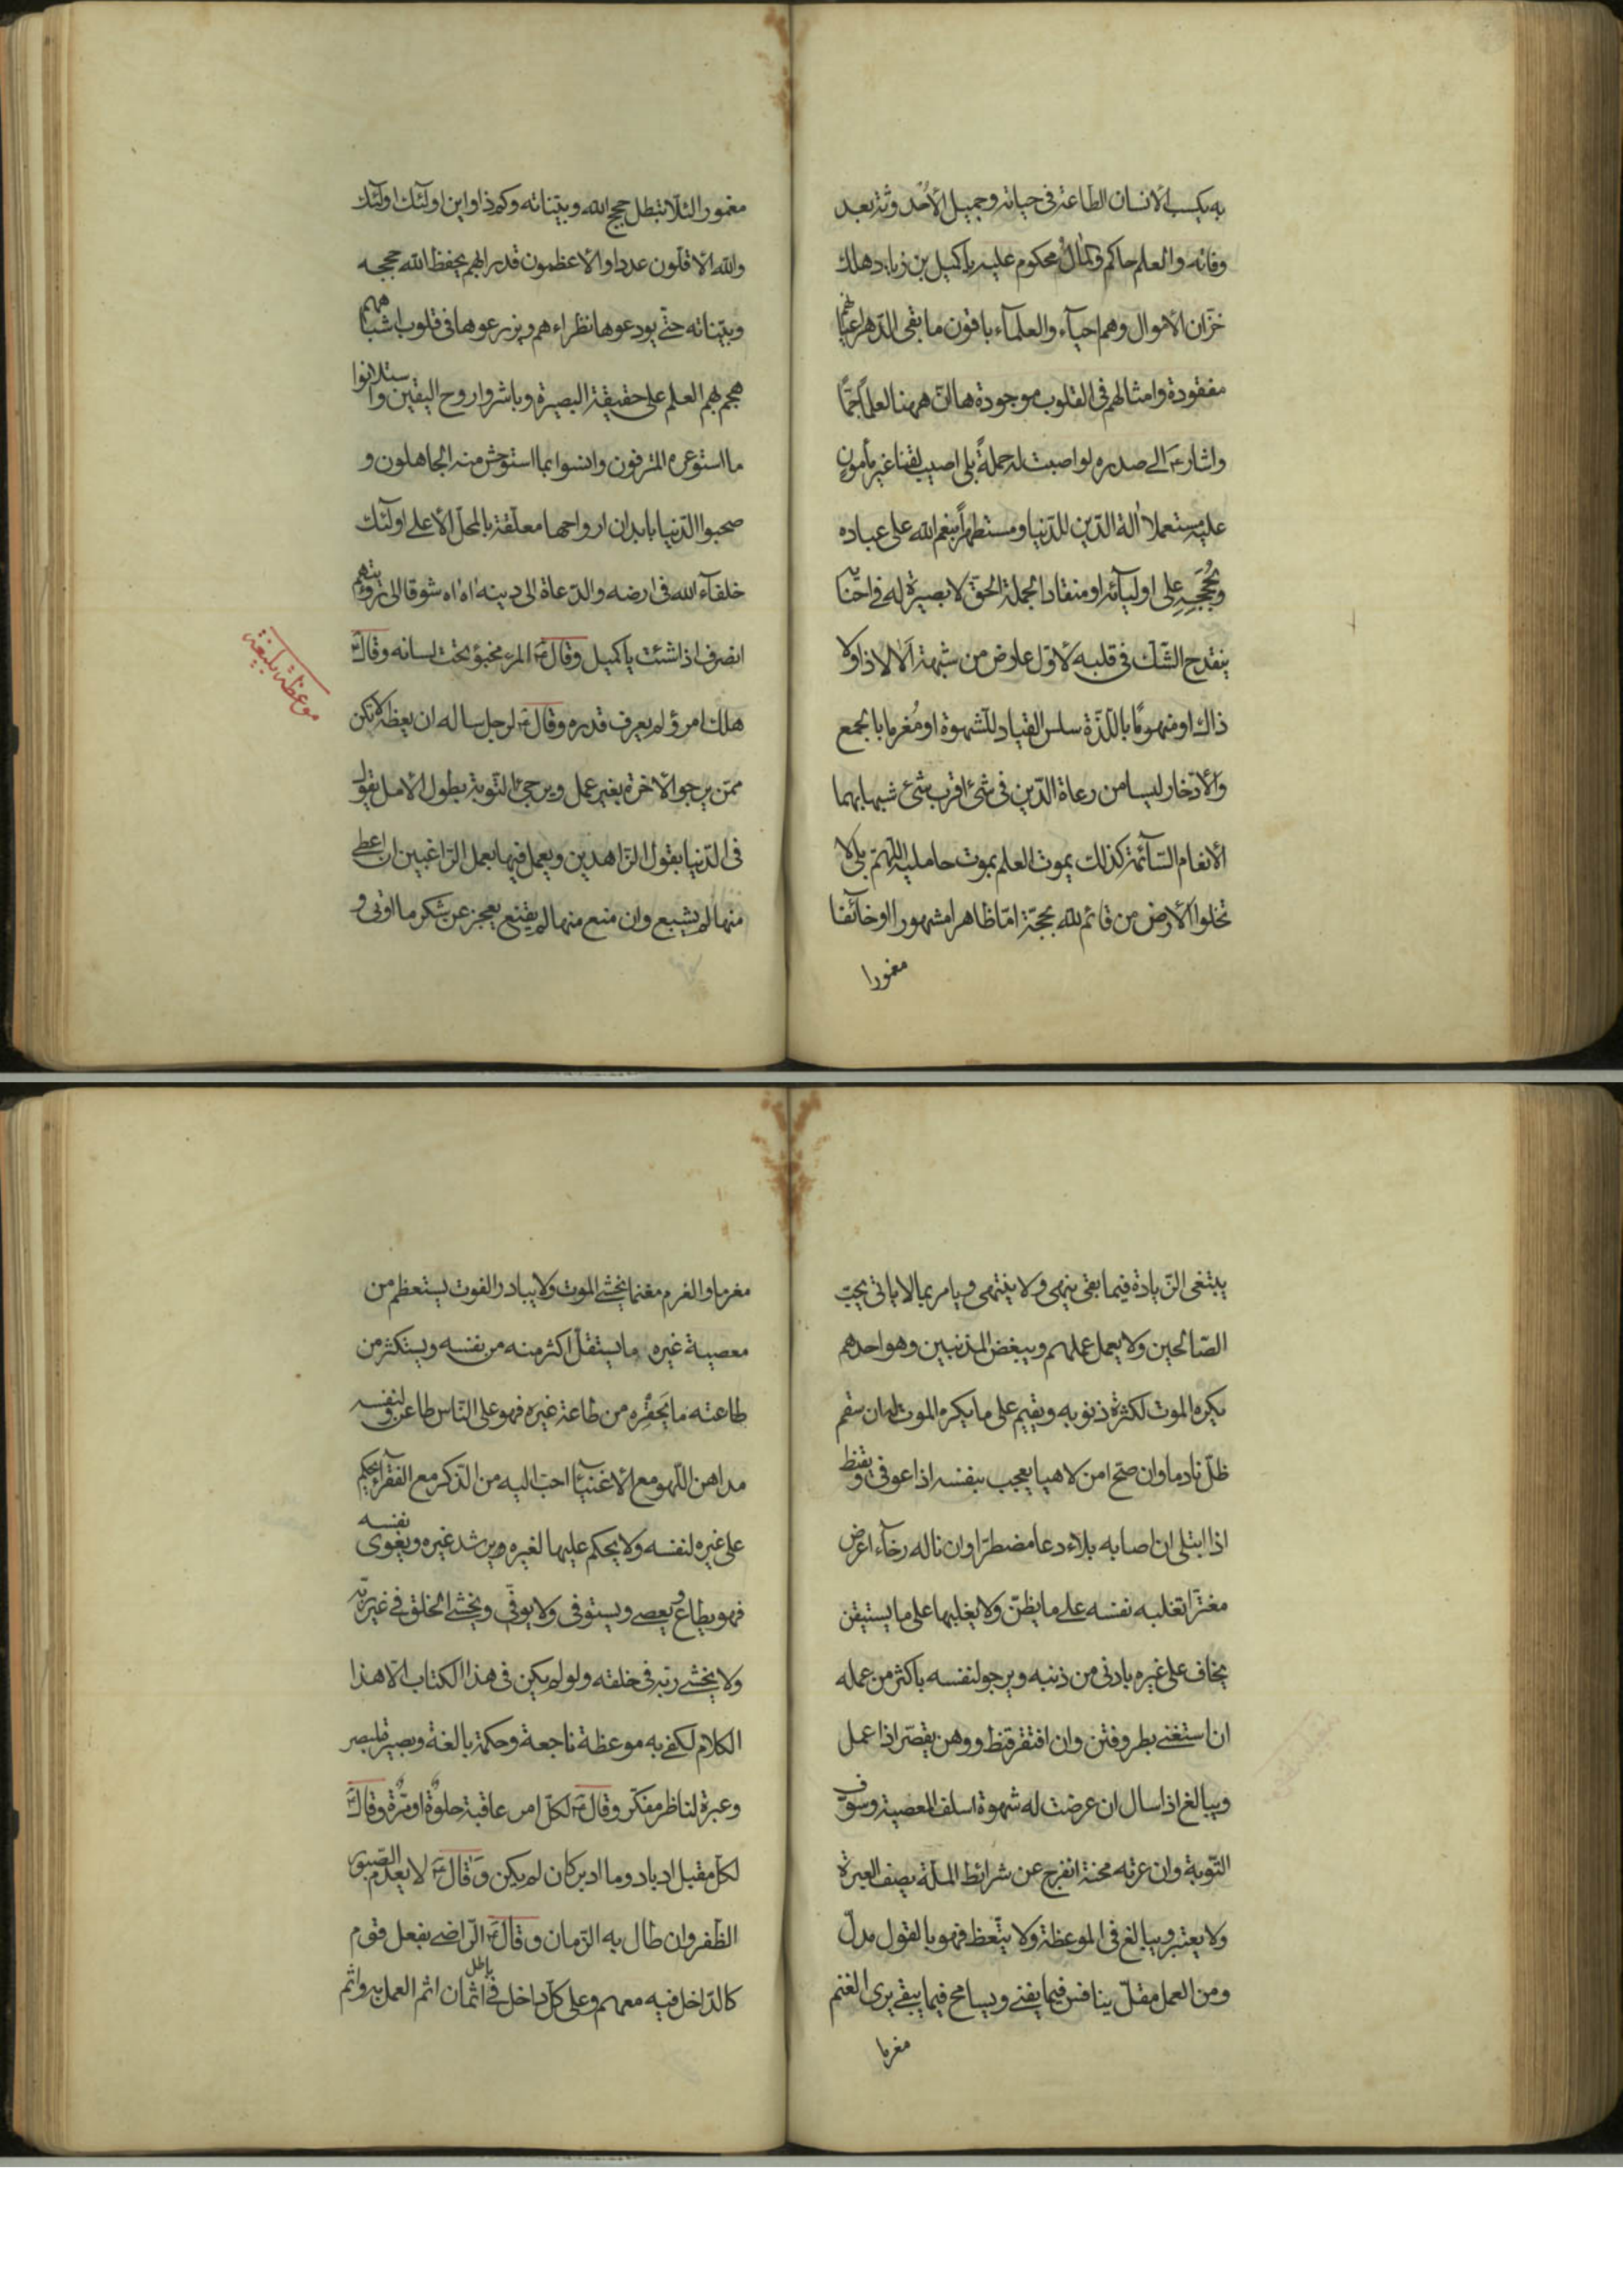 به يكسب الانسان الطاعة فى حياته وجميل الاحدوثة بعد
وفاته والعلم حاكم والمال محكوم عليه ياكميل بن زياد هلك
خزّان الاموال وهم احيآء والعلمآء باقون ما بقى الدّهر اعيانهم
مفقودة وامثالهم فى القلوب موجودة ها انّ ههنا لعلمًا جمًّا
واشار الى صدره لو اصبت له حملةً بلى اصيب لقنا غير مأمون
عليه مستعملا آلة الدّين للدّنيا ومستظهراً بنعم الله على عباده
وبحُججِه على اوليآئه او منقادا لحملة الحق لا بصيرة له فى احنائه
ينقدح الشّك فى قلبه لاوّل عارض من شبهة الا لا ذا ولا
ذاك او منهومًا باللّذّة سلس القياد للشهوة او مُغرما بالجمع
والادّخار ليسا من رعاة الدّين فى شئ اقرب شئ شبها بهما
الانعام السّآئمة كذلك يموت العلم بموت حامليه اللّهمّ بلى لا
تخلوا الارض من قائم لله بحجّة امّا ظاهرا مشهورا او خآئفا
مغمورا
مغمورا لئلّا تبطل حجج الله وبيّناته وكم ذا واين اولٓئك اولٓئك
والله الاقلّون عددا والاعظمون قدرا بهم يحفظ الله حججه
وبيّناته حتّى يودعوها نظراءهم ويزرعوها فى قلوب اشباههم
هجم بهم العلم على حقيقة البصيرة وباشروا روح اليقين واستلانوا
ما استوعره المترفون وانسوا بما استوحش منه الجاهلون و
صحبوا الدّنيا بابدان ارواحها معلّقة بالمحلّ الاعلى اولٓئك
خلفآء الله فى ارضه والدّعاة الى دينه اه اه شوقا الى رؤيتهم
انصرف اذا شئت ياكميل وقال ع المرء مخبؤ تحت لسانه وقال ع
هلك امرؤ لم يعرف قدره وقال ع لرجل ساله ان يعظه لا تكن
موعظة بليغة
ممّن يرجو الاخرة بغير عمل ويرجئ التّوبة بطول الامل يقول
فى الدّنيا بقول الزّاهدين ويعمل فيها بعمل الرّاغبين ان اعطى
منها لم يشبع وان منع منها لم يقنع يعجز عن شكر ما اوتى و
يبتغى الزّيادة فيما بقى ينهى ولا ينتهى ويامر بما لا ياتى يحبّ
الصّالحين ولا يعمل عملهم ويبغض المذنبين وهو احدهم
يكره الموت لكثرة ذنوبه ويقيم على ما يكره الموت له ان سقم
ظلّ نادما وان صحّ امن لاهيا يعجب بنفسه اذا عوفى ويقنط
اذا ابتلى ان اصابه بلاء دعا مضطرّا وان ناله رخآء اعرض
مغترّا تغلبه نفسه على ما يظنّ ولا يغلبها على ما يستيقن
يخاف على غيره بادنى من ذنبه ويرجو لنفسه باكثر من عمله
ان استغنى بطر وفتن وان افتقر قنط ووهن يقصّر اذا عمل
ويبالغ اذا سال ان عرضت له شهوة اسلف المعصية وسوّف
التّوبة وان عرته محنة انفرج عن شرائط الملّة يصف العبرة
ولا يعتبر ويبالغ فى الموعظة ولا يتّعظ فهو بالقول مدلّ
ومن العمل مقلّ ينافس فيما يفنى ويسامح فيما يبقى يرى الغنم
مغرما
مغرما والغرم مغنما يخشى الموت ولا يبادر الفوت يستعظم من
معصية غيره ما يستقلّ اكثر منه من نفسه ويستكثر من
طاعته ما يَحقِره من طاعة غيره فهو على النّاس طاعن ولنفسه
مداهن اللّهو مع الاغنيآء احبّ اليه من الذّكر مع الفقرآء يحكم
على غيره لنفسه ولا يحكم عليها لغيره ويرشد غيره ويغوى نفسه
فهو يطاع ويعصى ويستوفى ولا يوفّى ويخشى الخلق فى غير ربّه
ولا يخشى ربّه فى خلقه ولو لم يكن فى هذا الكتاب الّا هذا
الكلام لكفى به موعظة ناجعة وحكمة بالغة وبصيرة لمبصر
وعبرة لناظر مفكّر وقال ع لكلّ امر عاقبة حلوةٌ او مرّةٌ وقال ع
لكلّ مقبل ادبار وما ادبر كان لم يكن وقال ع لا يعدم الصّبور
الظّفر وان طال به الزّمان وقال ع الرّاضى بفعل قوم
كالدّاخل فيه معهم وعلى كلّ داخل فى باطل اثمان اثم العمل به واثم